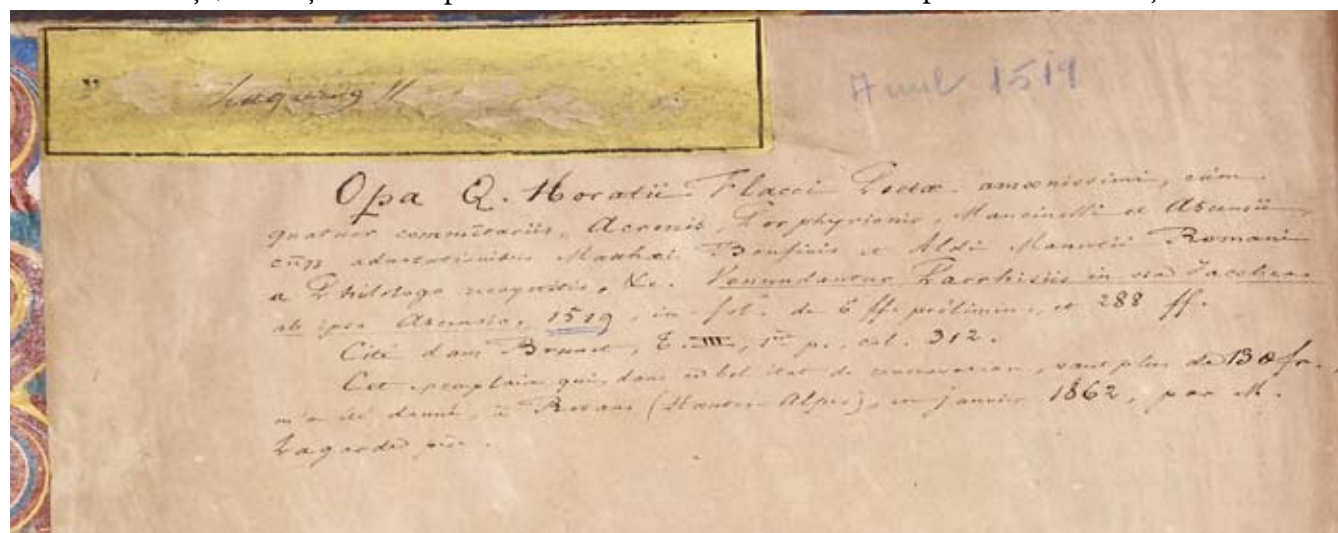 Anul 1519
Opa Q. Horatii Flacci Poetæ amœnissimi, cùm
quatuor commētariis, Acronis, Porphyrionis, Mancinelli et Ascensii
adnotationibus Matthæi Bonfinis et Aldi Manutii Romani
a Philologo recognitis, &c. Venundantur Parrhisiis in via Jacobæa
ab ipso Ascensio, 1519, in-fol. de 6 ff. prélimin., et 288 ff.
Cité dans Brunet, T. III, 1re p., col. 312.
Cet exemplaire qui, dans ce bel état de conservation, vaut plus de 130 fr.,
m'a été donné, à Rosans (Hautes-Alpes), en janvier 1862, par M.
Lagarde père.